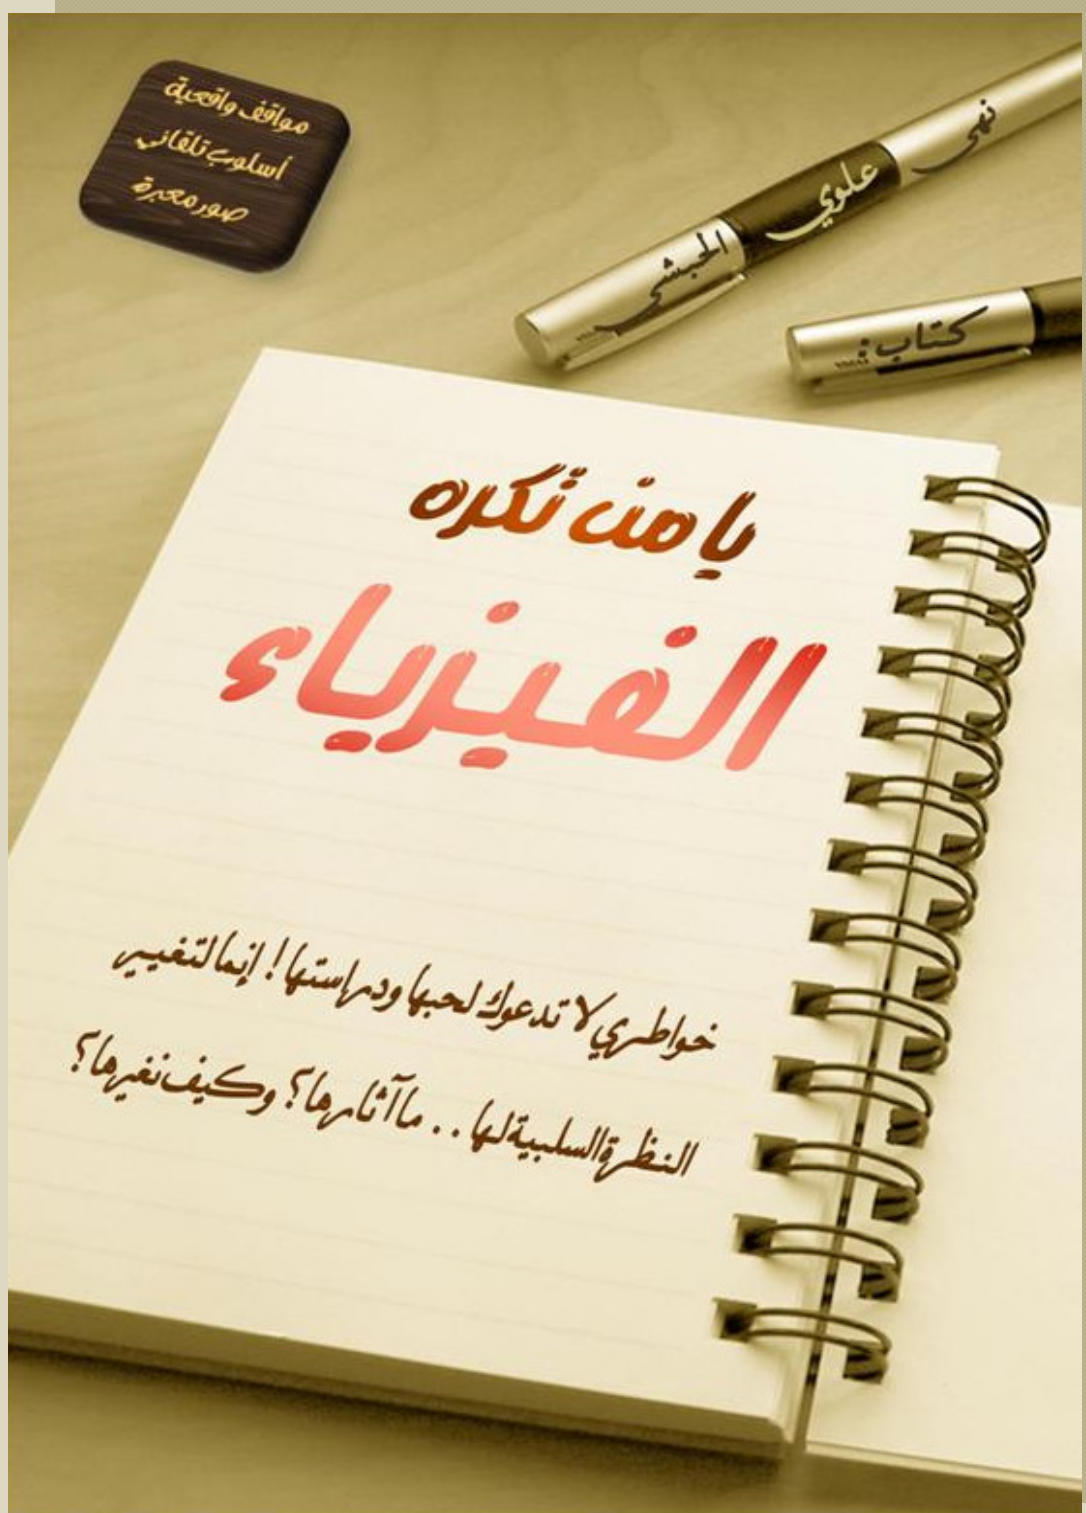 مواقف واقعية
أسلوب تلقائي
صور معبرة
نهى
علوي
الحبشي
كتاب:
يا من تكره
الفيزياء
خواطري لا تدعوك لحبها ودراستها! إنما لتغيير
النظرة السلبية لها .. ما آثارها؟ وكيف نغيرها؟